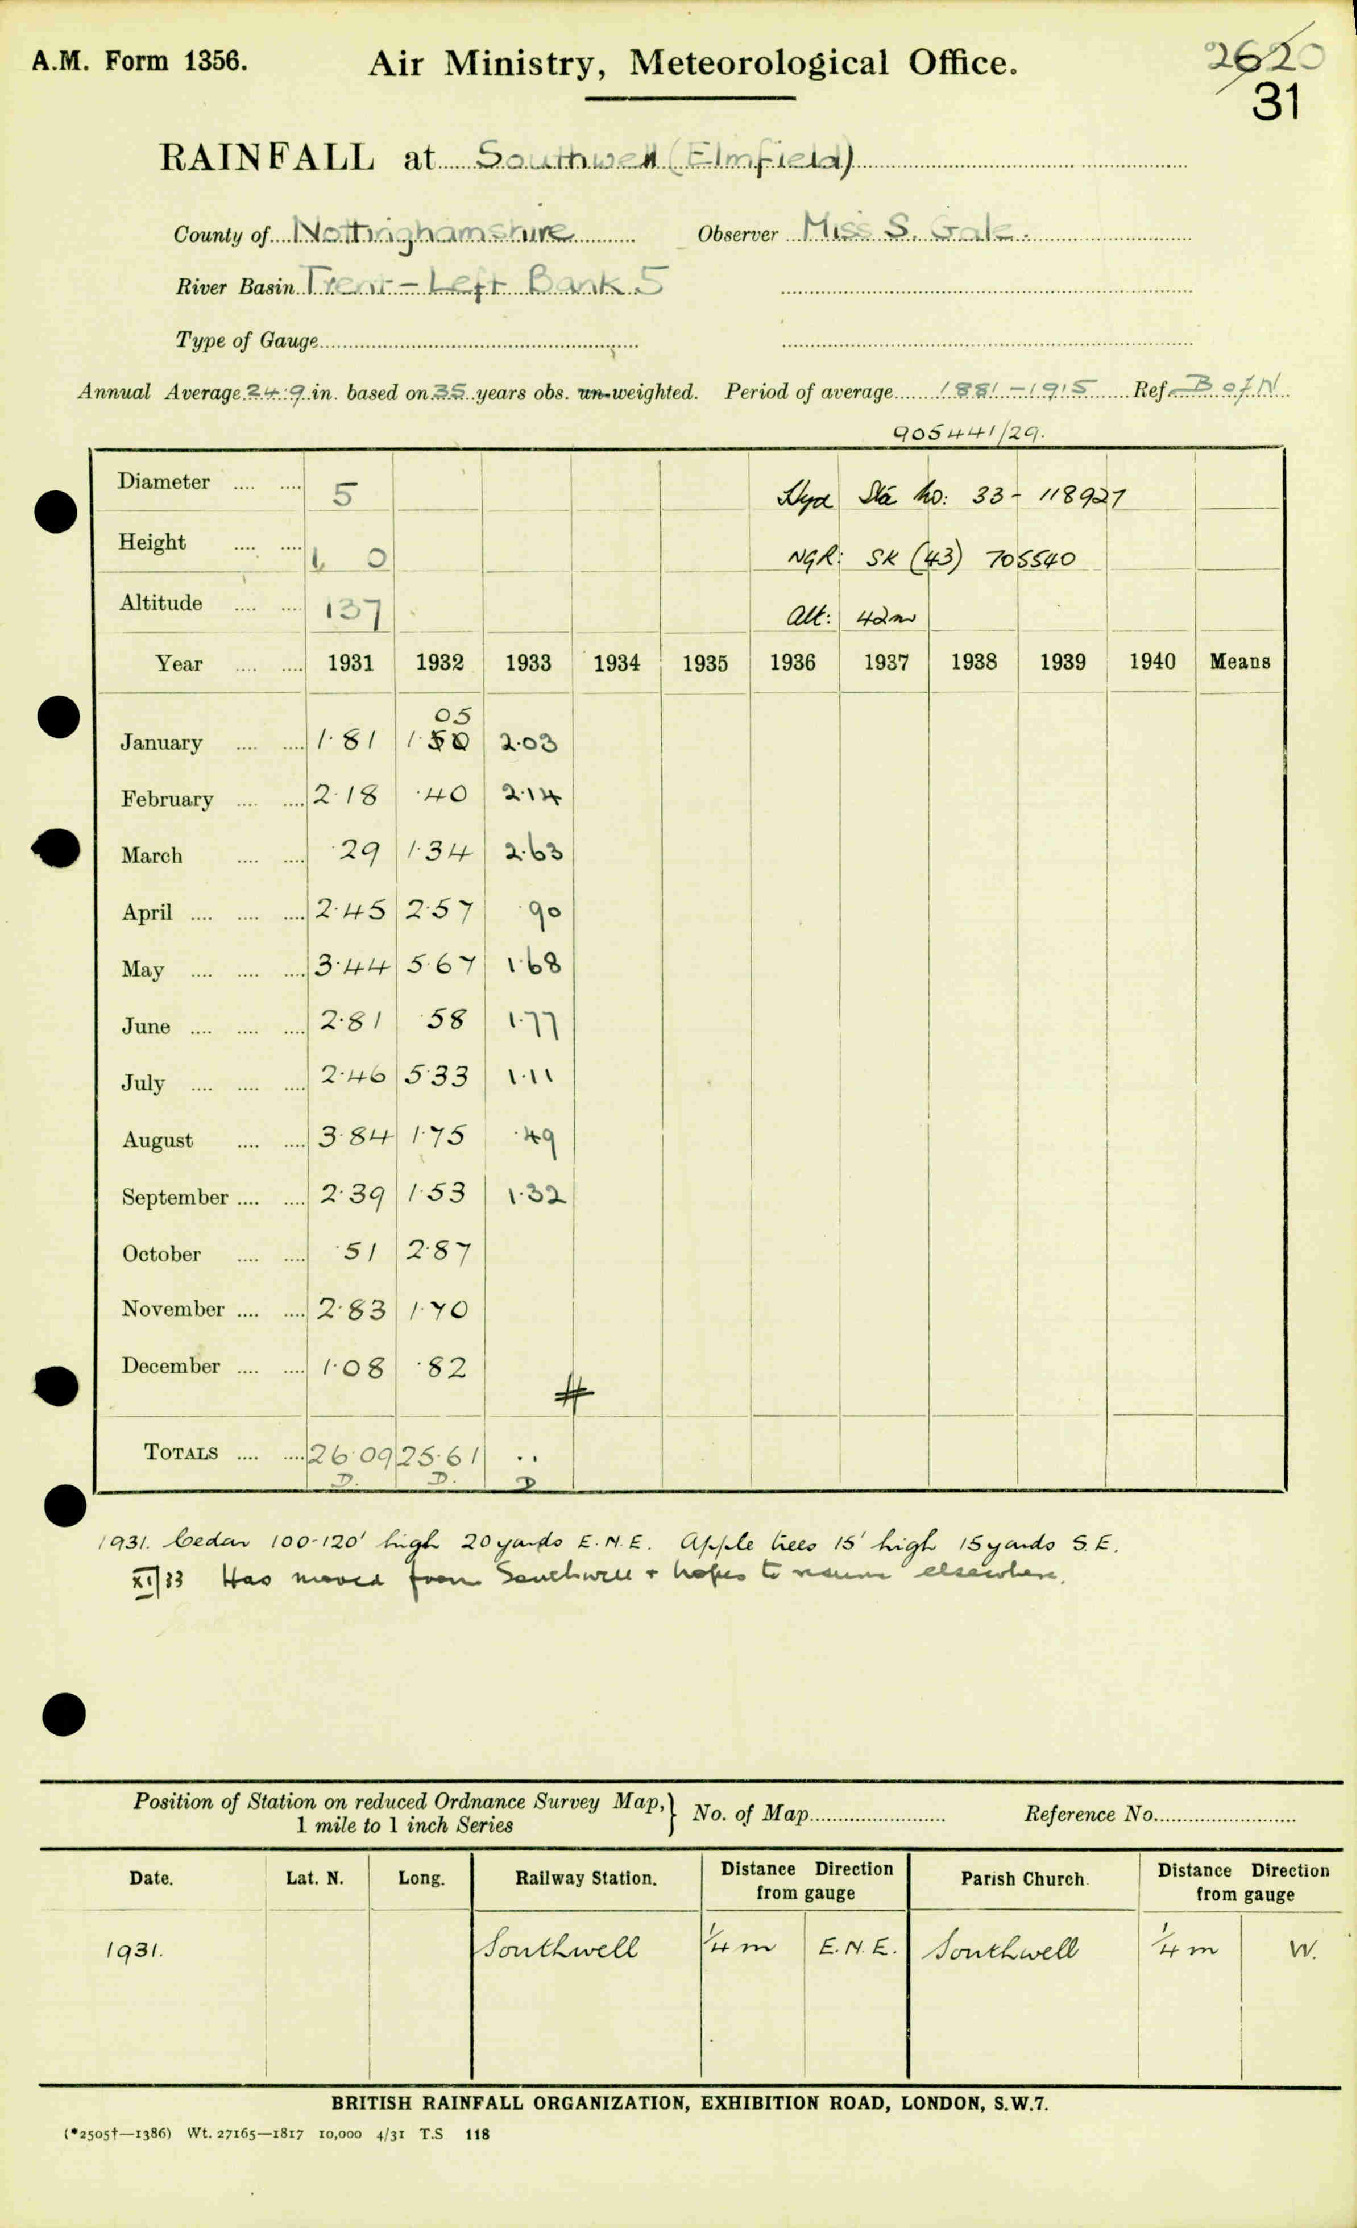 A.M. Form 1356. Air Ministry, Meteorological Office. 2620
31
RAINFALL at Southwell (Elmfield)
County of Nottinghamshire Observer Miss S. Gale.
River Basin Trent - Left Bank 5
Type of Gauge
Annual Average 24.9 in. based on 35 years obs. un-weighted. Period of average 1881-1915 Ref. B of N
905441/29.
Diameter 5 Hyd Sta No: 33 - 118927
Height 1 0 NGR: SK (43) 705540
Altitude 137 Alt: 42m
Year 1931 1932 1933 1934 1935 1936 1937 1938 1939 1940 Means
05
January 1.81 1.50 2.03
February 2.18 .40 2.14
March .29 1.34 2.63
April 2.45 2.57 .90
May 3.44 5.67 1.68
June 2.81 .58 1.77
July 2.46 5.33 1.11
August 3.84 1.75 .49
September 2.39 1.53 1.32
October .51 2.87
November 2.83 1.70
December 1.08 .82
#
TOTALS 26.09 25.61 ..
D. D. D
1931. Cedar 100-120' high 20 yards E.N.E. Apple trees 15' high 15 yards S.E.
XI/33 Has moved from Southwell + hopes to resume elsewhere.
Position of Station on reduced Ordnance Survey Map, } No. of Map Reference No.
1 mile to 1 inch Series
Date. Lat. N. Long. Railway Station. Distance Direction from gauge Parish Church. Distance Direction from gauge
1931. Southwell 1/4 m E.N.E. Southwell 1/4 m W.
BRITISH RAINFALL ORGANIZATION, EXHIBITION ROAD, LONDON, S.W.7.
(*2505†—1386) Wt. 27165—1817 10,000 4/31 T.S 118